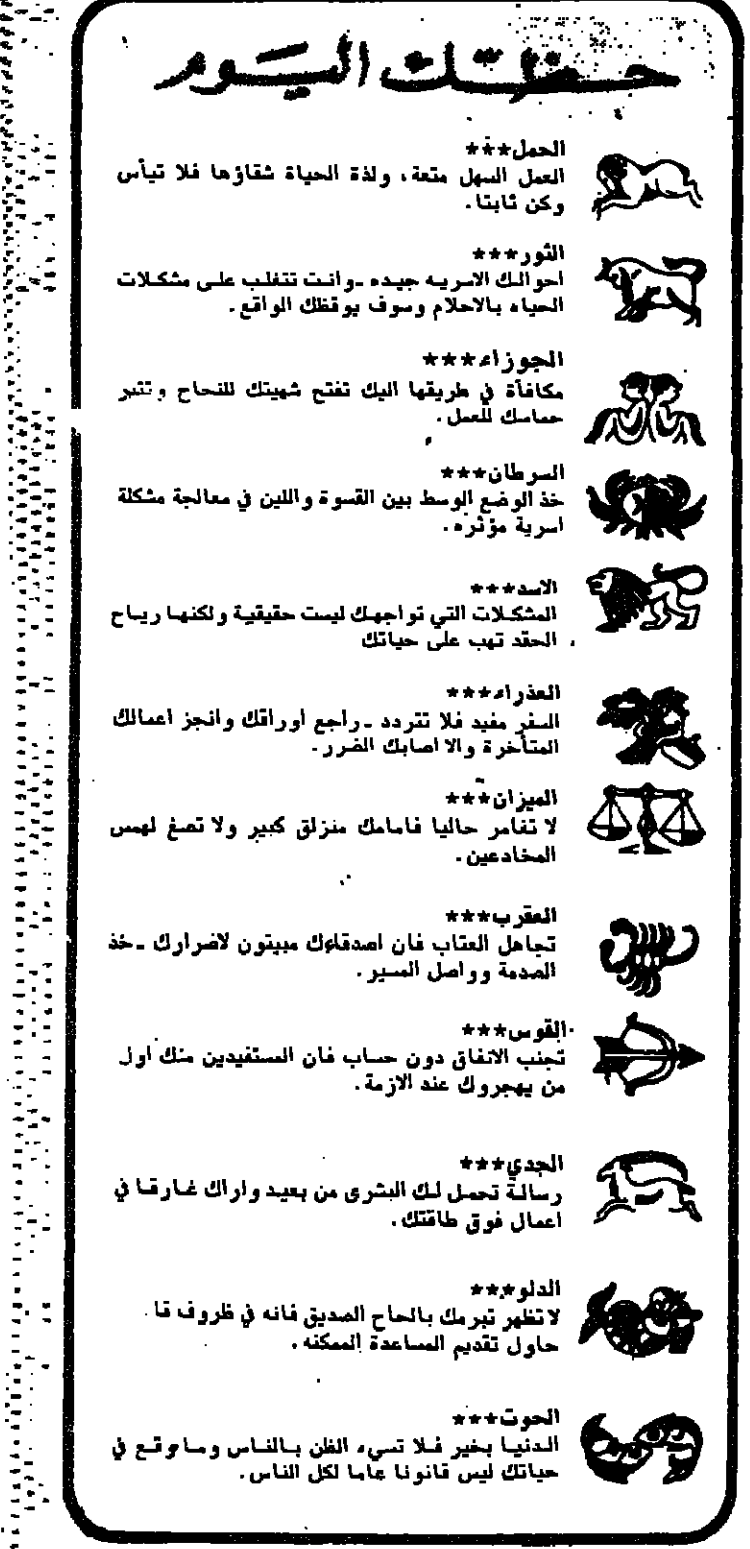 حظك اليوم
الحمل***
العمل السهل متعة، ولذة الحياة شقاؤها فلا تيأس
وكن ثابتا.
الثور***
احوالك الاسريه جيده ـ وانت تتغلب على مشكلات
الحياه بالاحلام وسوف يوقظك الواقع.
الجوزاء***
مكافأة في طريقها اليك تفتح شهيتك للنجاح وتثير
حماسك للعمل.
السرطان***
خذ الوضع الوسط بين القسوة واللين في معالجة مشكلة
اسرية مؤثره.
الاسد***
المشكلات التي تواجهك ليست حقيقية ولكنها رياح
الحقد تهب على حياتك.
العذراء***
السفر مفيد فلا تتردد ـ راجع اوراقك وانجز اعمالك
المتأخرة والا اصابك الضرر.
الميزان***
لا تغامر حاليا فامامك منزلق كبير ولا تصغ لهمس
المخادعين.
العقرب***
تجاهل العتاب فان اصدقاءك مبيتون لاضرارك ـ خذ
الصدمة وواصل المسير.
القوس***
تجنب الانفاق دون حساب فان المستفيدين منك اول
من يهجروك عند الازمة.
الجدي***
رسالة تحمل لك البشرى من بعيد واراك غارقا في
اعمال فوق طاقتك.
الدلو***
لا تظهر تبرمك بالحاح الصديق فانه في ظروف قا
حاول تقديم المساعدة الممكنه.
الحوت***
الدنيا بخير فلا تسيء الظن بالناس وما وقع في
حياتك ليس قانونا عاما لكل الناس.